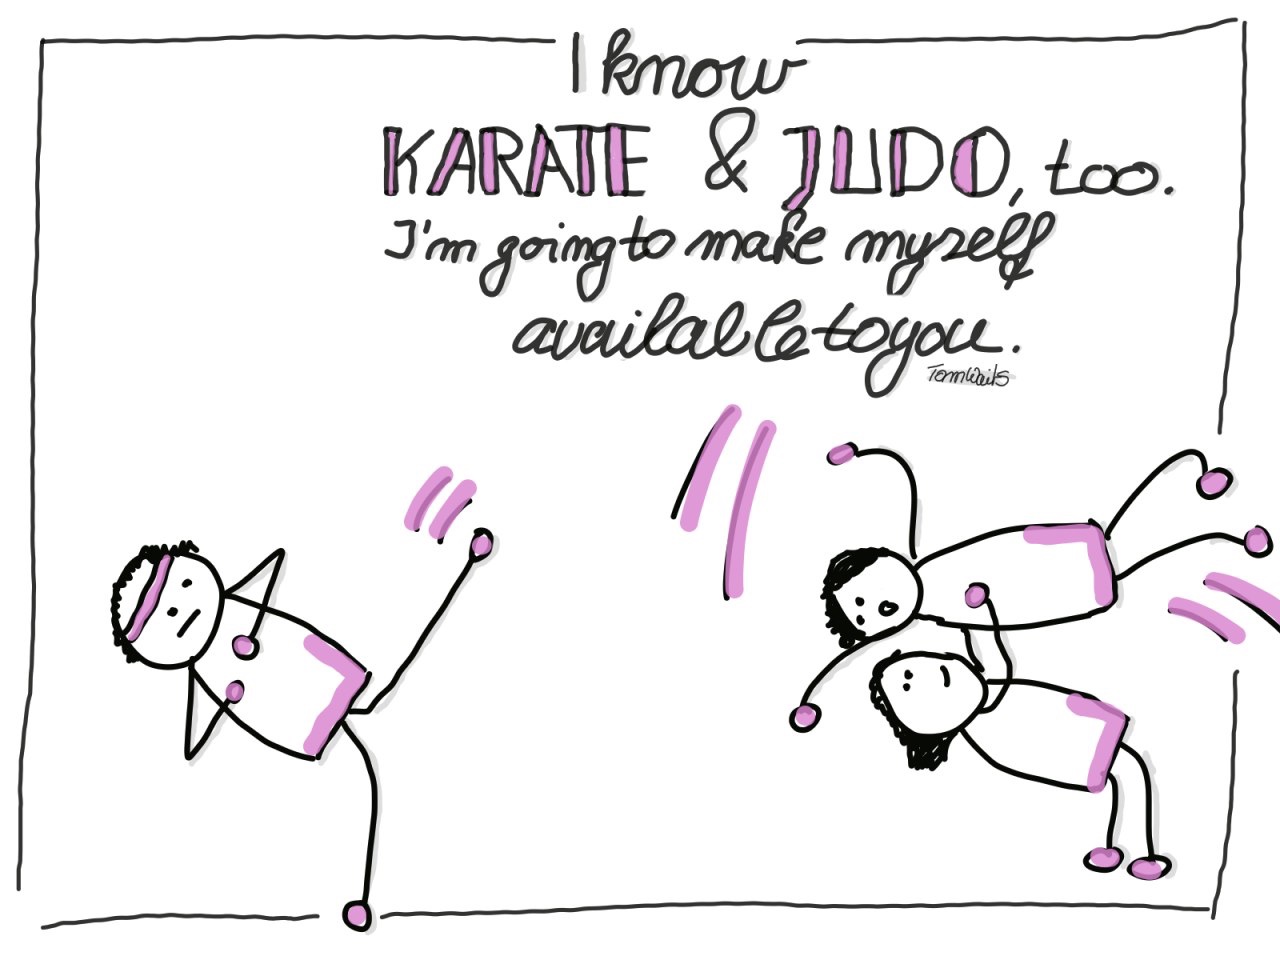 I know
KARATE & JUDO, too.
I'm going to make myself
available to you.
Tom Waits